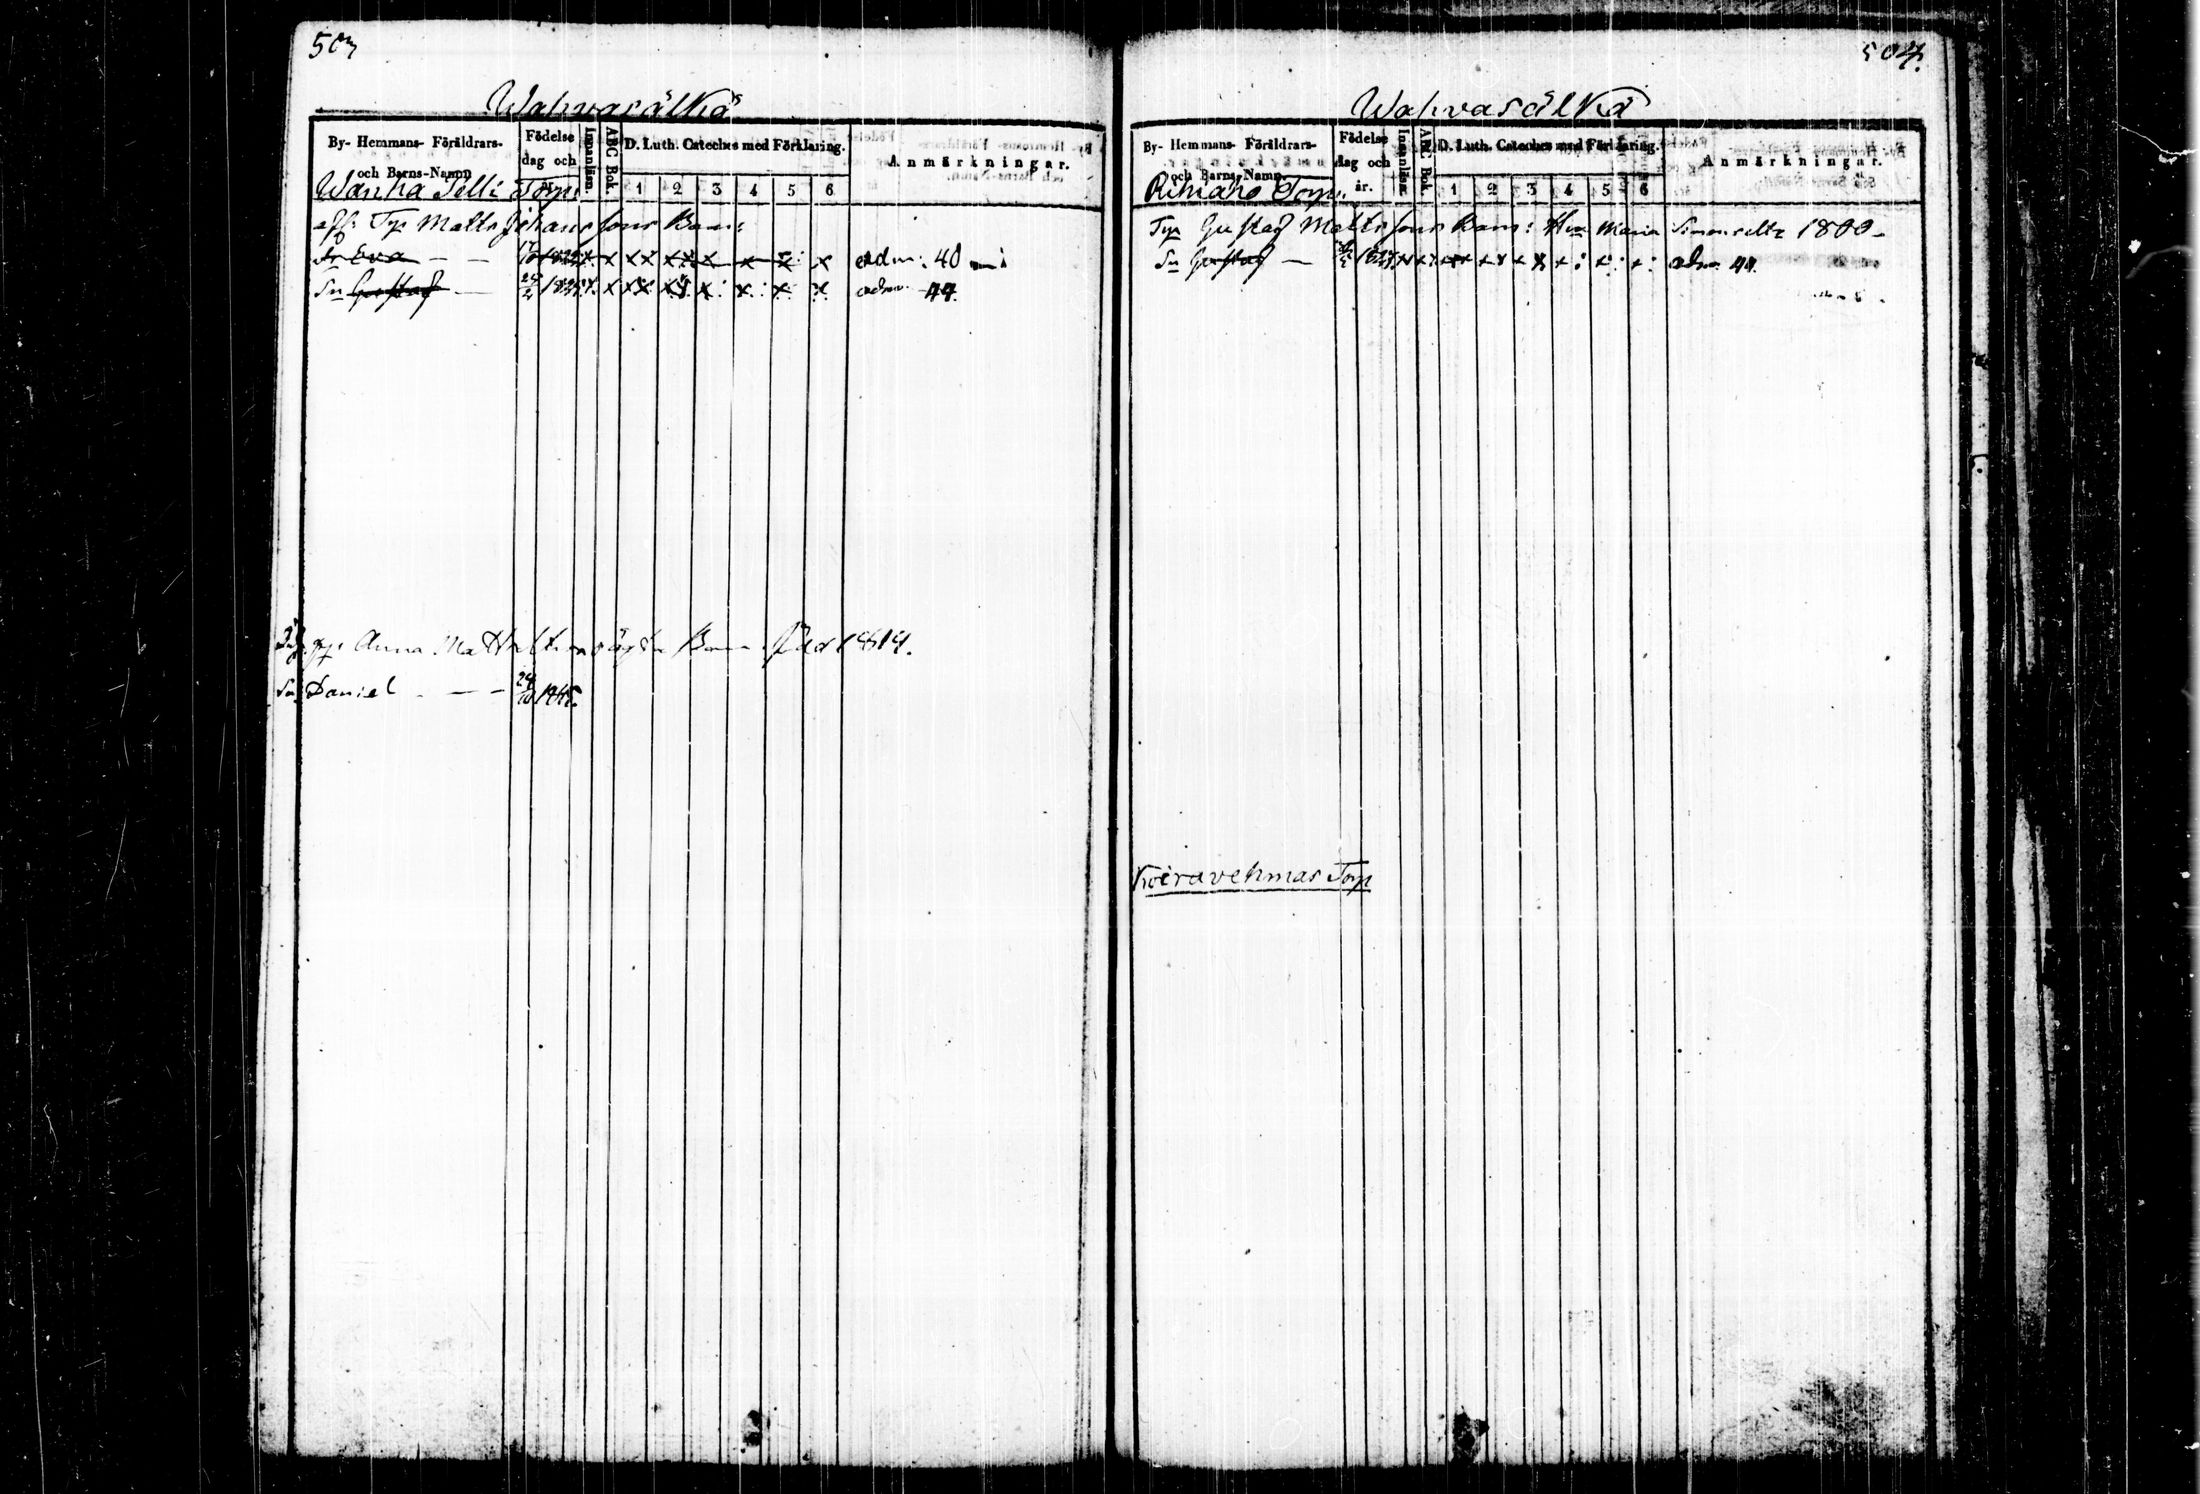 503
Wahvasälkä
By- Hemmans- Föräldrars- och Barns-Namn
Födelse dag och år.
Innanläsn.
ABC Bok.
D. Luth. Cateches med Förklaring.
1 2 3 4 5 6
Anmärkningar.
Wanha Pelli Torp.
aff. Tp Matts Johanssons Barn:
Dr Eva — — 1822 x x x x x x x x x x adm: 40
Sn Gustaf — 1825 x x x x x x x x x x adm. 44.
Anna Barn född 1814.
Sn Daniel - — — 24/10 1845.
504.
Wahvasälkä
By- Hemmans- Föräldrars- och Barns-Namn
Födelse dag och år.
Innanläsn.
ABC Bok.
D. Luth. Cateches med Förklaring.
1 2 3 4 5 6
Anmärkningar.
Torp.
Tp Gustaf Mattssons Barn: Hu Maria Simonsdtr 1800-
Sn Gustaf — adm 44.
Koiravehmas Torp